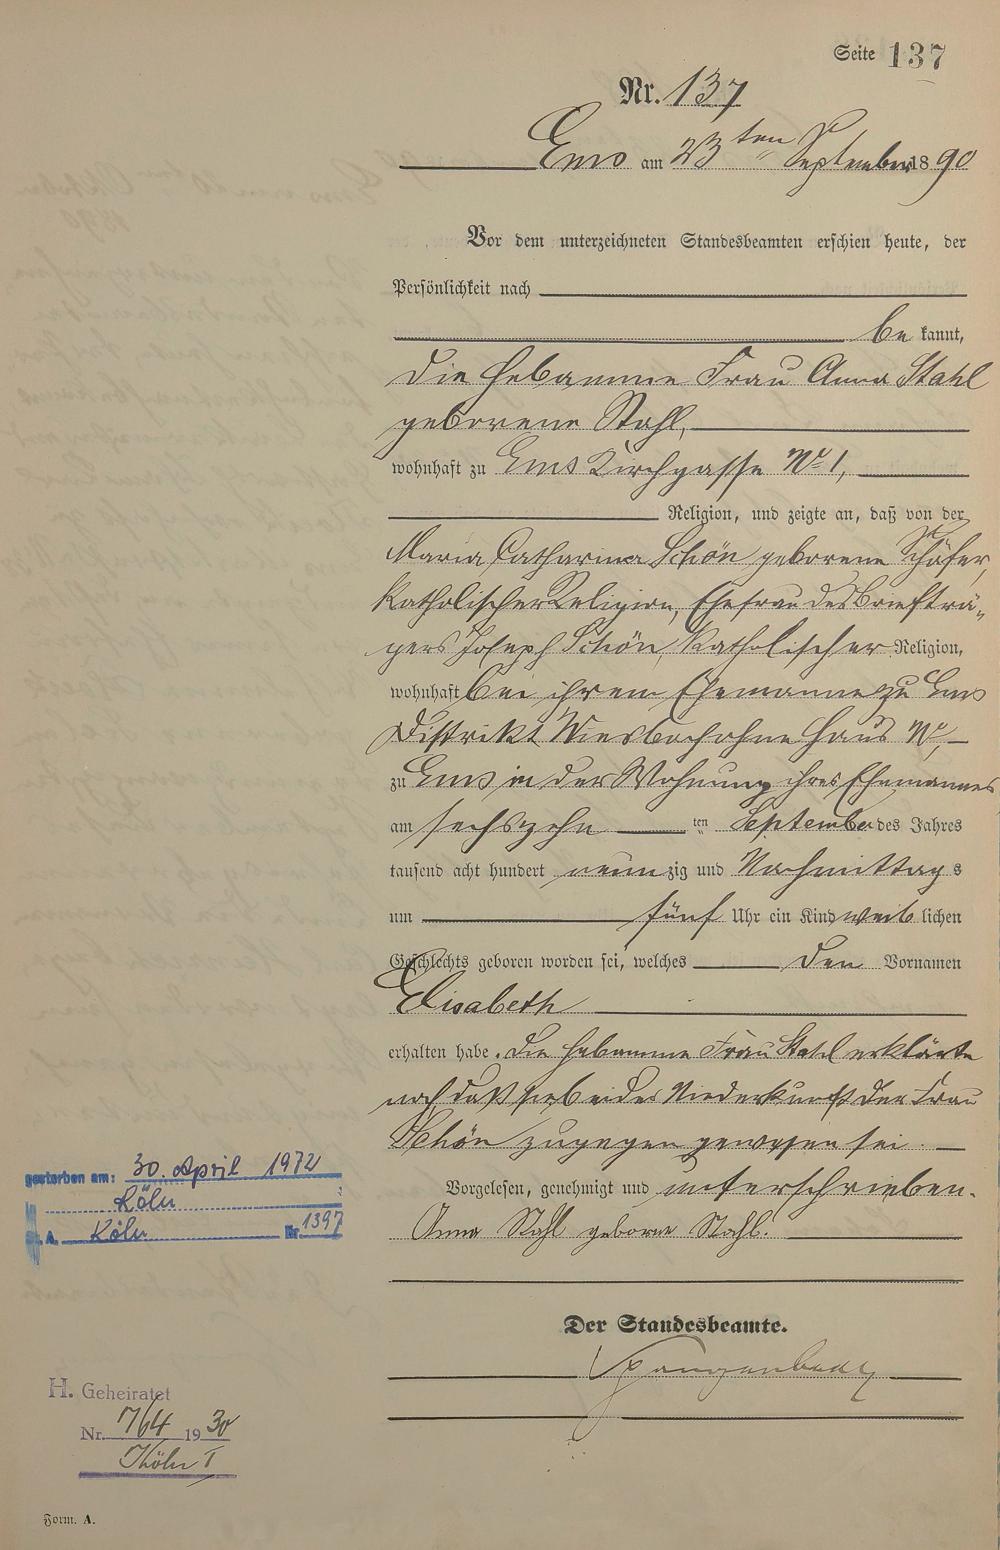 Seite 137
Nr. 137
Ems am 23ten September 1890
Vor dem unterzeichneten Standesbeamten erschien heute, der
Persönlichkeit nach
be kannt,
die Hebamme Frau Anna Stahl
geborene Stahl,
wohnhaft zu Ems Kirchgasse No 1,
Religion, und zeigte an, daß von der
Maria Catharina Schön geborene Schäfer,
katholischer Religion, Ehefrau des Briefträ-
gers Joseph Schön, katholischer Religion,
wohnhaft bei ihrem Ehemanne zu Ems
Distrikt Wiesbach ohne Haus No,
zu Ems in der Wohnung ihres Ehemannes
am sechszehn ten September des Jahres
tausend acht hundert neunzig und Nachmittags
um fünf Uhr ein Kind weiblichen
Geschlechts geboren worden sei, welches den Vornamen
Elisabeth
erhalten habe. Die Hebamme Frau Stahl erklärte
noch daß sie bei der Niederkunft der Frau
Schön zugegen gewesen sei.
Vorgelesen, genehmigt und unterschrieben.
Anna Stahl geborne Stahl.
Der Standesbeamte.
gestorben am: 30. April 1972
in Köln
St. A. Köln Nr 1397
H. Geheiratet
Nr. 764 1930
Köln I
Form. A.